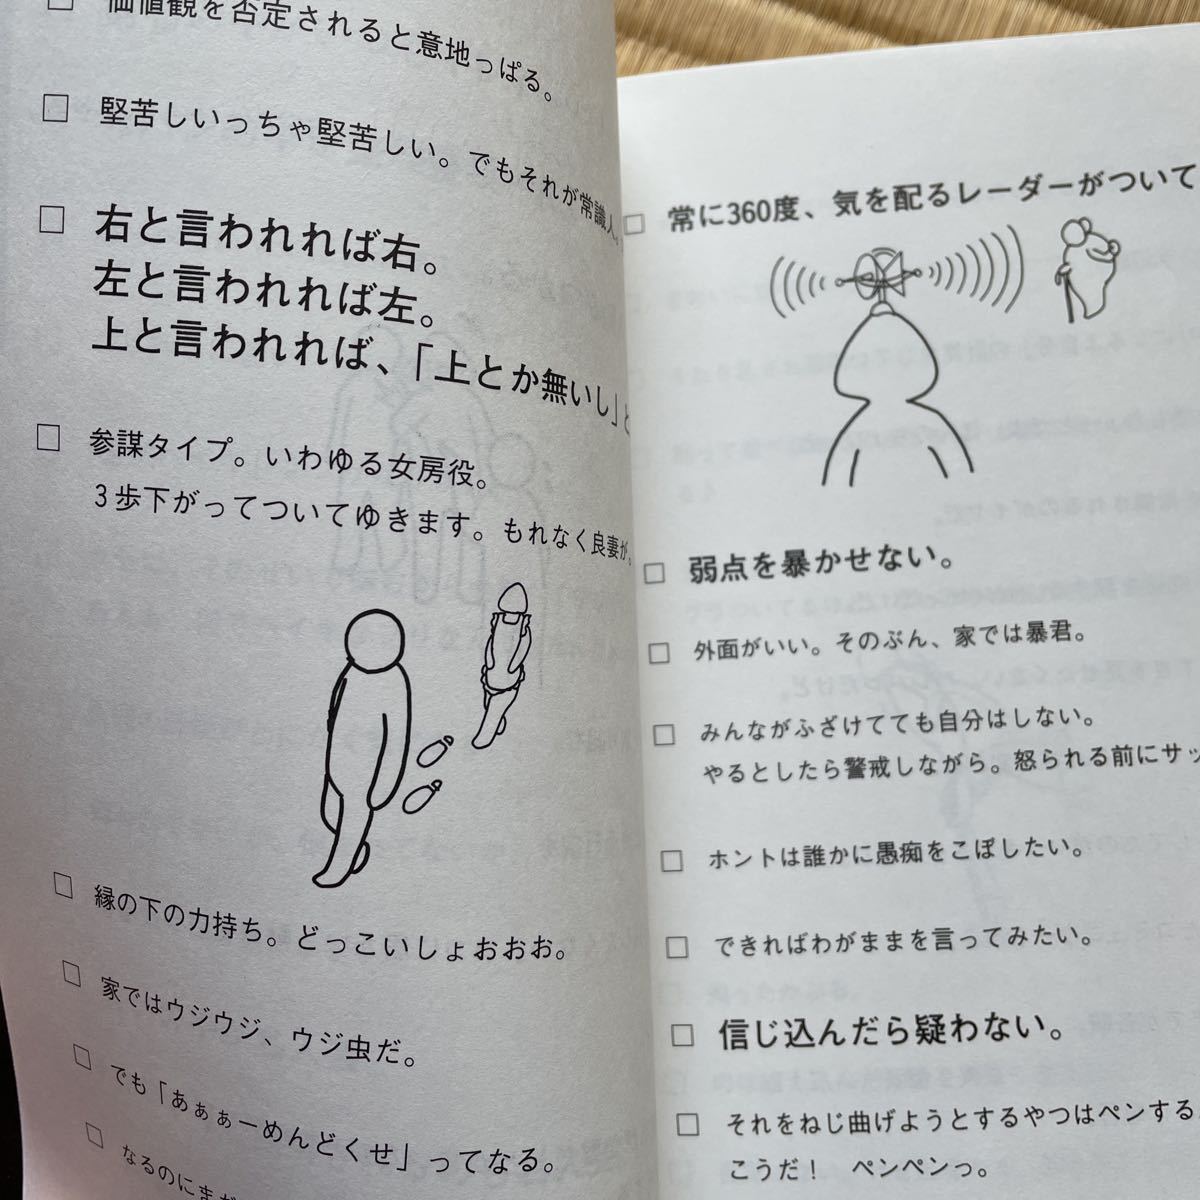 □ 価値観を否定されると意地っぱる。
□ 堅苦しいっちゃ堅苦しい。でもそれが常識人。
□ 右と言われれば右。
左と言われれば左。
上と言われれば、「上とか無いし」と
□ 参謀タイプ。いわゆる女房役。
3歩下がってついてゆきます。もれなく良妻が。
□ 縁の下の力持ち。どっこいしょおおお。
□ 家ではウジウジ、ウジ虫だ。
□ でも「あぁぁーめんどくせ」ってなる。
□ なるのにまだ
□ 常に360度、気を配るレーダーがついて
□ 弱点を暴かせない。
□ 外面がいい。そのぶん、家では暴君。
□ みんながふざけてても自分はしない。
やるとしたら警戒しながら。怒られる前にサッ
□ ホントは誰かに愚痴をこぼしたい。
□ できればわがままを言ってみたい。
□ 信じ込んだら疑わない。
□ それをねじ曲げようとするやつはペンする
こうだ！　ペンペンっ。